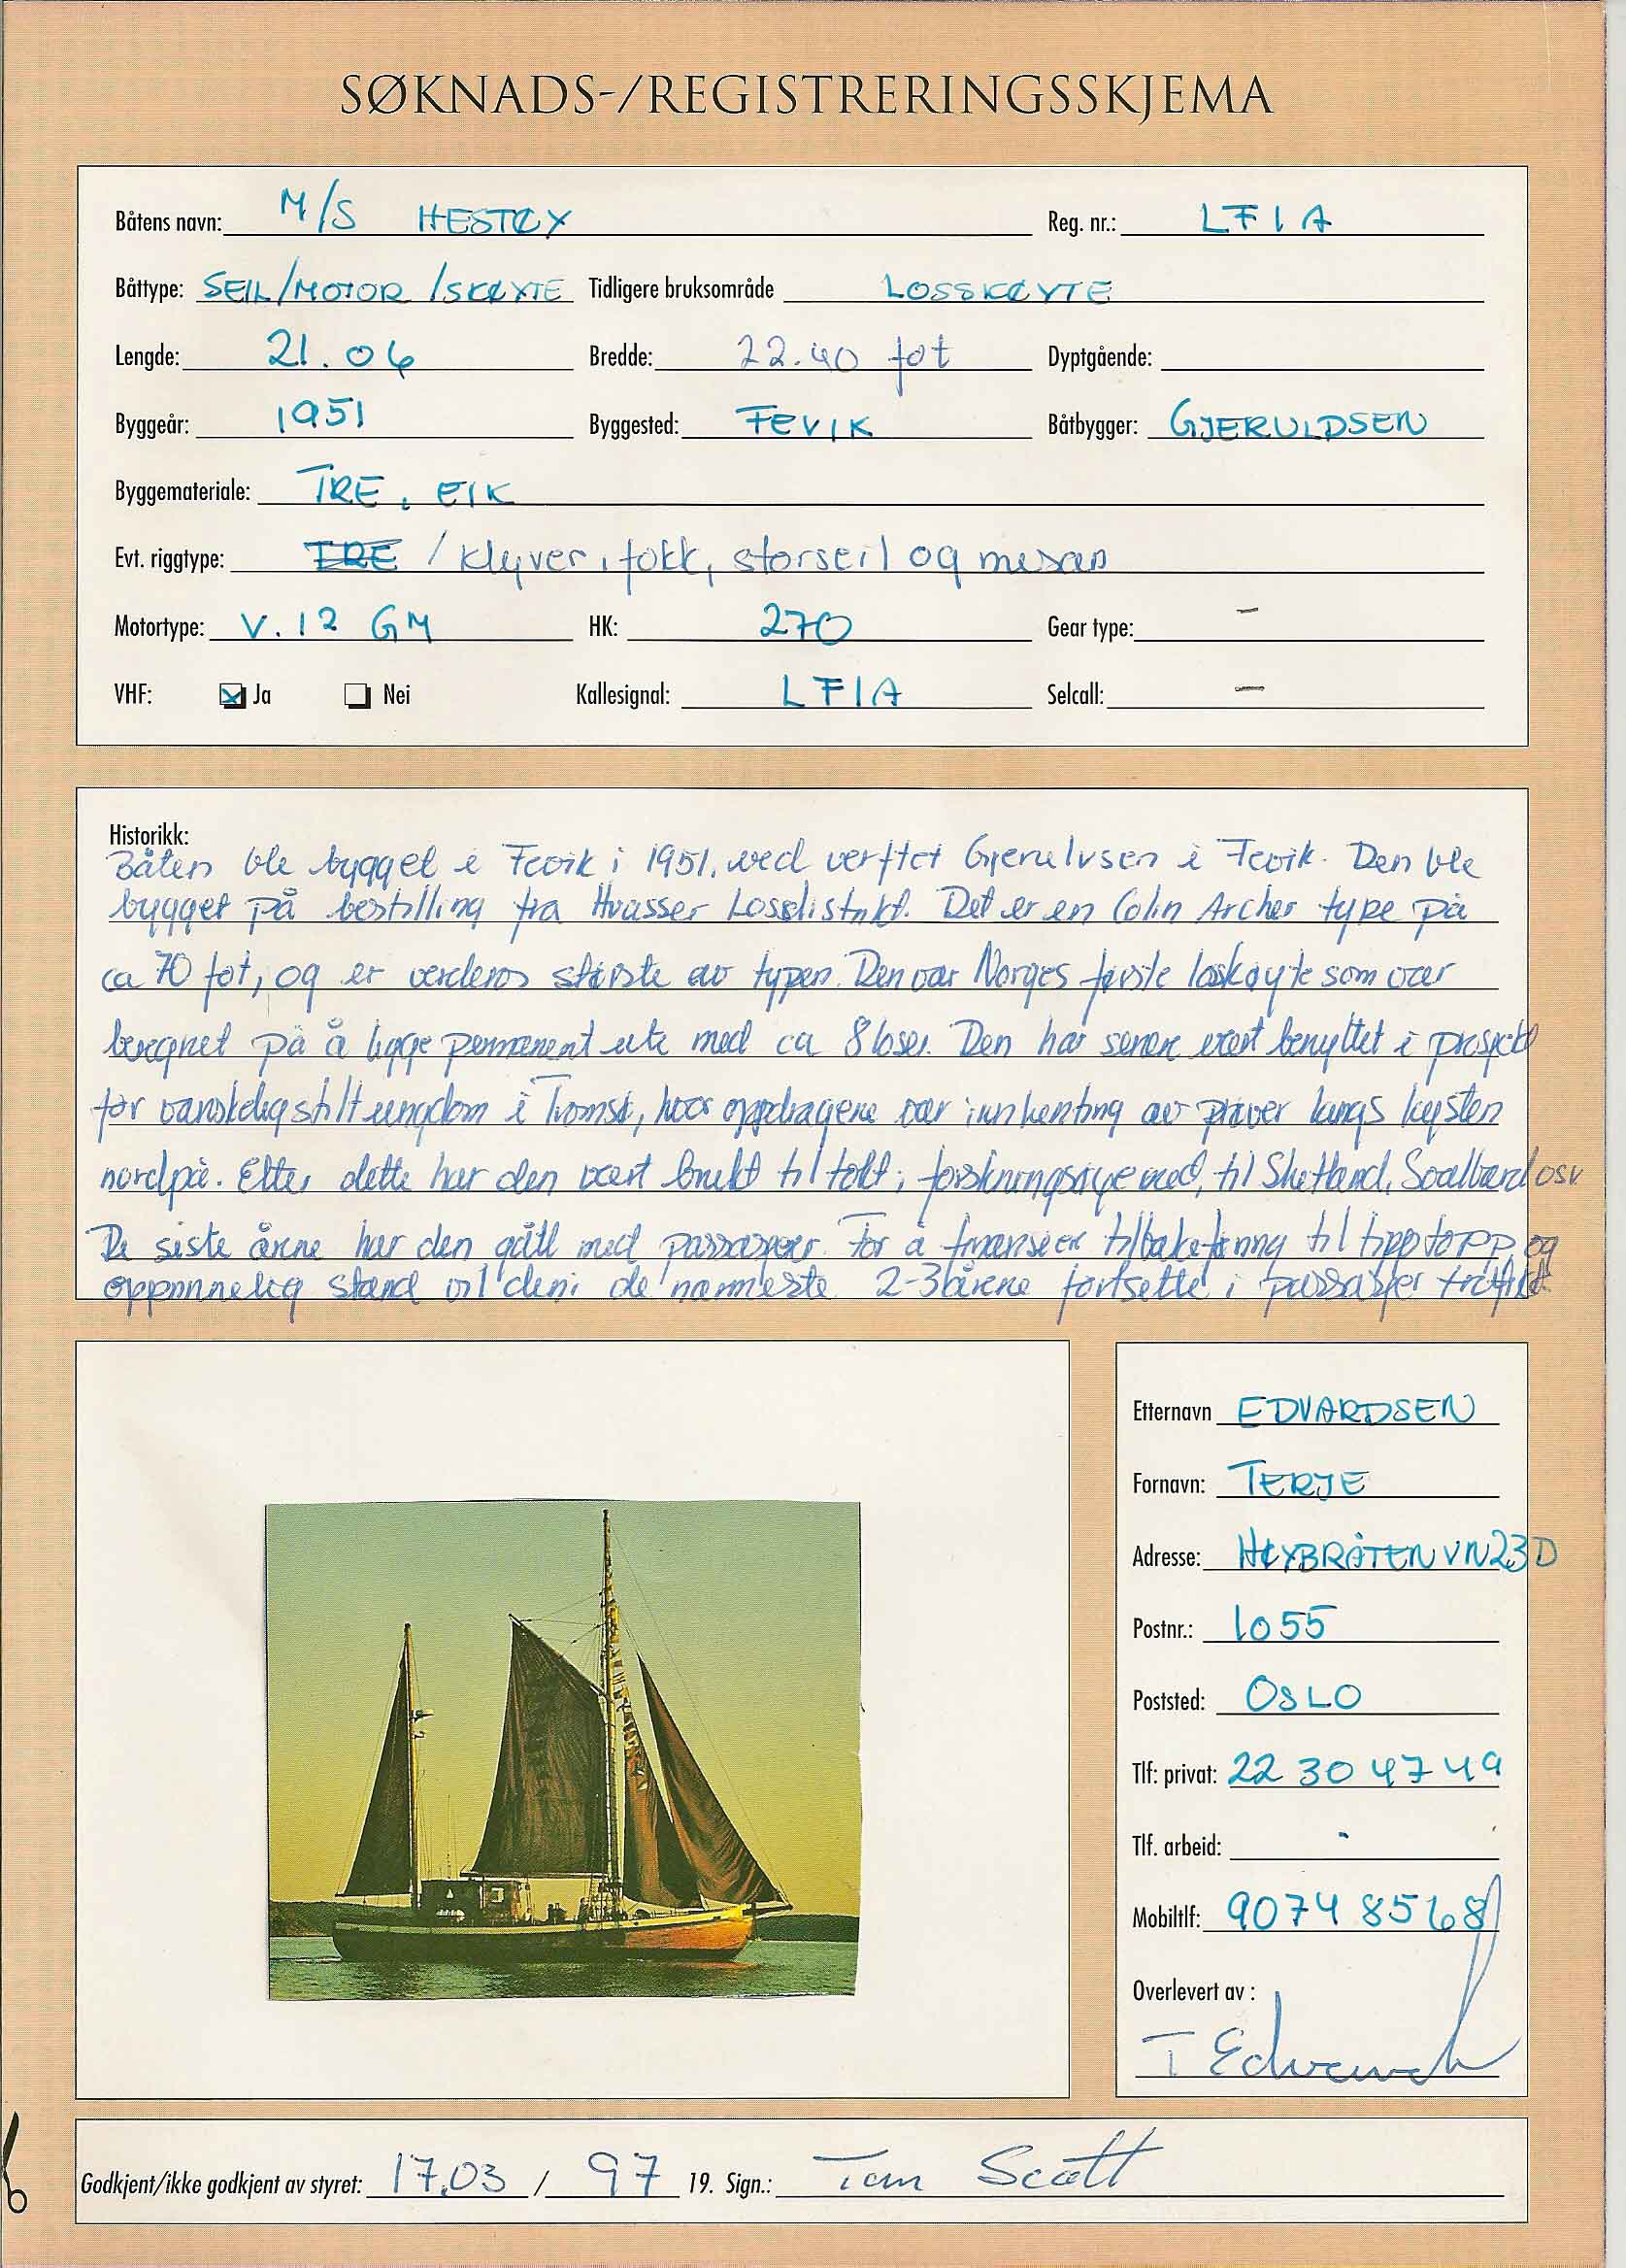 SØKNADS-/REGISTRERINGSSKJEMA
Båtens navn: M/S HESTØY Reg. nr.: LFIA
Båttype: SEIL/MOTOR/SKØYTE Tidligere bruksområde LOSSKØYTE
Lengde: 21.06 Bredde: 22.40 fot Dyptgående:
Byggeår: 1951 Byggested: FEVIK Båtbygger: GJERULDSEN
Byggemateriale: TRE, EIK
Evt. riggtype: TRE / klyver, fokk, storseil og mesan
Motortype: V.12 GM HK: 270 Gear type: –
VHF: Ja Nei Kallesignal: LFIA Selcall: –
Historikk:
Båten ble bygget i Fevik i 1951, ved verftet Gjerulvsen i Fevik. Den ble
bygget på bestilling fra Hvasser Losdistrikt. Det er en Colin Archer type på
ca 70 fot, og er verdens største av typen. Den var Norges første losskøyte som var
beregnet på å ligge permanent ute med ca 8 loser. Den har senere vært benyttet i prosjekt
for vanskeligstilt ungdom i Tromsø, hvor oppdragene var innhenting av prøver langs kysten
nordpå. Etter dette har den vært brukt til tokt, til Shetland, Svalbard osv
De siste årene har den gått med passasjerer. For å finansiere tilbakeføring til tipp topp og
opprinnelig stand vil den i de nærmeste 2-3 årene fortsette i passasjer trafikk.
Etternavn EDVARDSEN
Fornavn: TERJE
Adresse: HØYBRÅTENVN 23 D
Postnr.: 1055
Poststed: OSLO
Tlf: privat: 22 30 47 49
Tlf. arbeid: -
Mobiltlf: 9074 8568
Overlevert av :
T Edvardsen
Godkjent/ikke godkjent av styret: 17.03 / 97 19. Sign.: Tom Scott